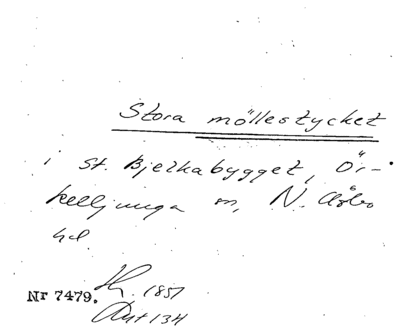 Stora möllestycket
i st. Bjerkabygget, Ör-
kelljunga sn, N. Åsbo
hd.
Nr 7479. 1857
Akt 134